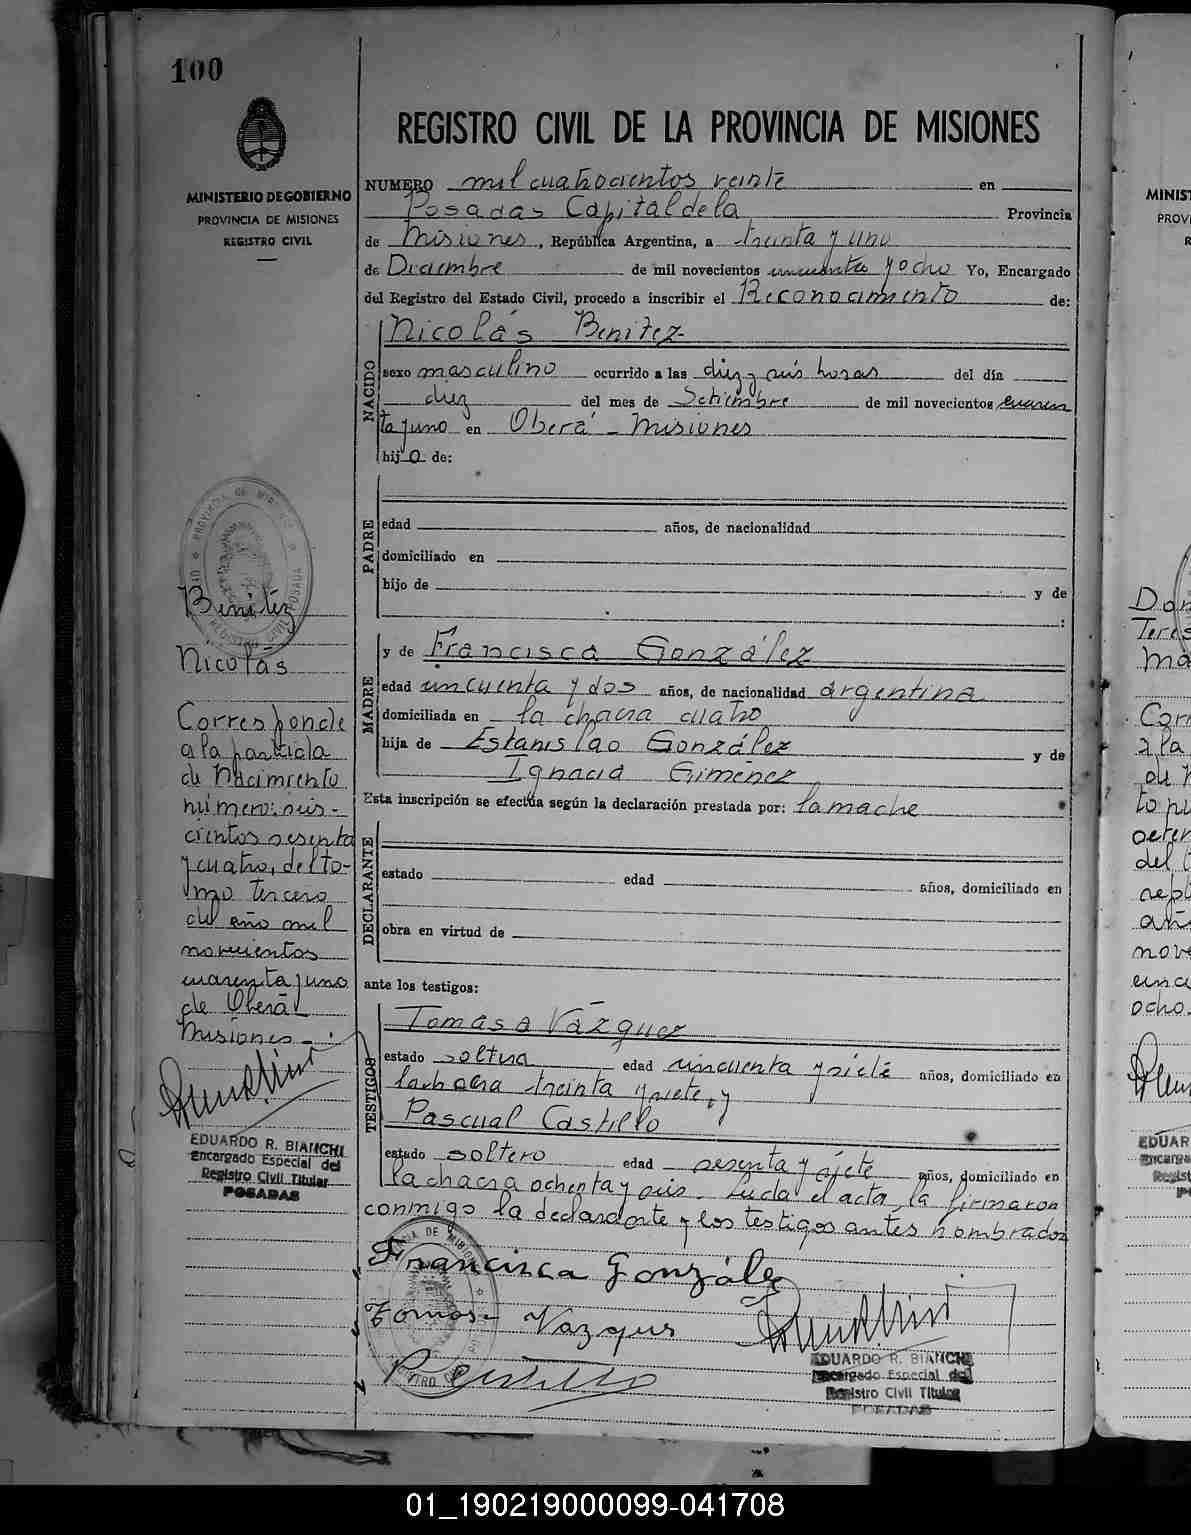 100
MINISTERIO DE GOBIERNO
PROVINCIA DE MISIONES
REGISTRO CIVIL
REGISTRO CIVIL DE LA PROVINCIA DE MISIONES
NUMERO mil cuatrocientos veinte en
Posadas Capital de la Provincia
de Misiones, República Argentina, a treinta y uno
de Diciembre de mil novecientos cincuenta y ocho Yo, Encargado
del Registro del Estado Civil, procedo a inscribir el Reconocimiento de:
NACIDO
Nicolás Benitez
sexo masculino ocurrido a las diez y seis horas del día
diez del mes de Setiembre de mil novecientos cuaren
ta y uno en Oberá - Misiones
hijo de:
PADRE
edad años, de nacionalidad
domiciliado en
hijo de y de
:
MADRE
y de Francisca González
edad cincuenta y dos años, de nacionalidad argentina
domiciliada en la chacra cuatro
hija de Estanislao González y de
Ignacia Giménez
Esta inscripción se efectúa según la declaración prestada por: la madre
DECLARANTE
estado edad años, domiciliado en
obra en virtud de
ante los testigos:
TESTIGOS
Tomasa Vázquez
estado soltera edad cincuenta y siete años, domiciliado en
la chacra treinta y siete, y
Pascual Castillo
estado soltero edad sesenta y siete años, domiciliado en
la chacra ochenta y seis. Leida el acta, la firmaron
conmigo la declarante y los testigos antes nombrados
Francisca González
Tomasa Vazques
P Castillo
EDUARDO R. BIANCHI
Encargado Especial del
Registro Civil Titular
POSADAS
Benitez
Nicolás
Corresponde
a la partida
de Nacimiento
número: seis-
cientos sesenta
y cuatro, del to-
mo tercero
del año mil
novecientos
cuarenta y uno
de Oberá
Misiones.
EDUARDO R. BIANCHI
Encargado Especial del
Registro Civil Titular
POSADAS
MINIST
PROV
R
Don
Teres
Ma
Corr
a la
de N
to nú
del t
sept
año
nove
cinc
ocho.
EDUAR
Encarga
Regist
P
01_190219000099-041708